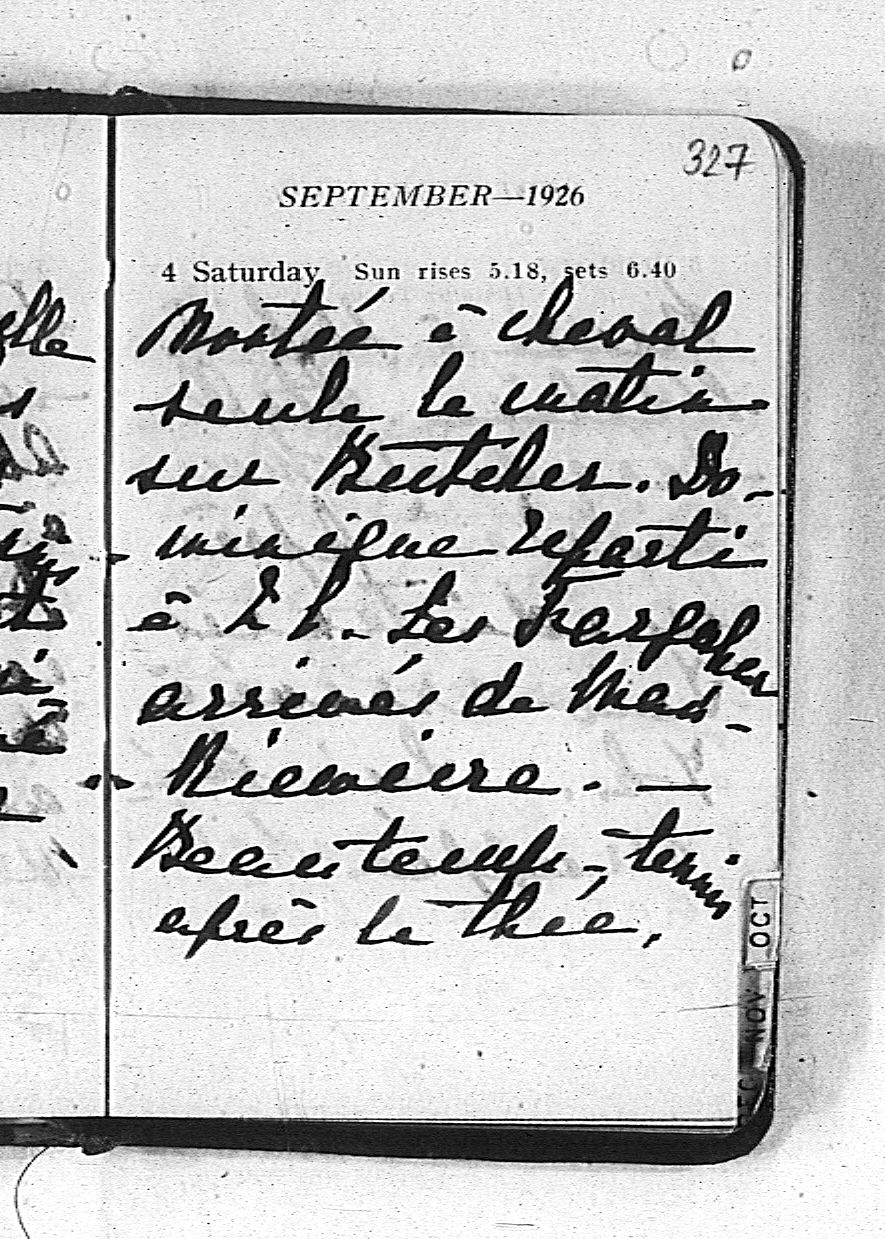 327
SEPTEMBER—1926
4 Saturday Sun rises 5.18, sets 6.40
Montée à cheval
seule le matin
sur Butcher. Do-
minique reparti
à 2 h. Les
arrivés de Mad.
Beau temps, tennis
après le thée,
OCT
NOV